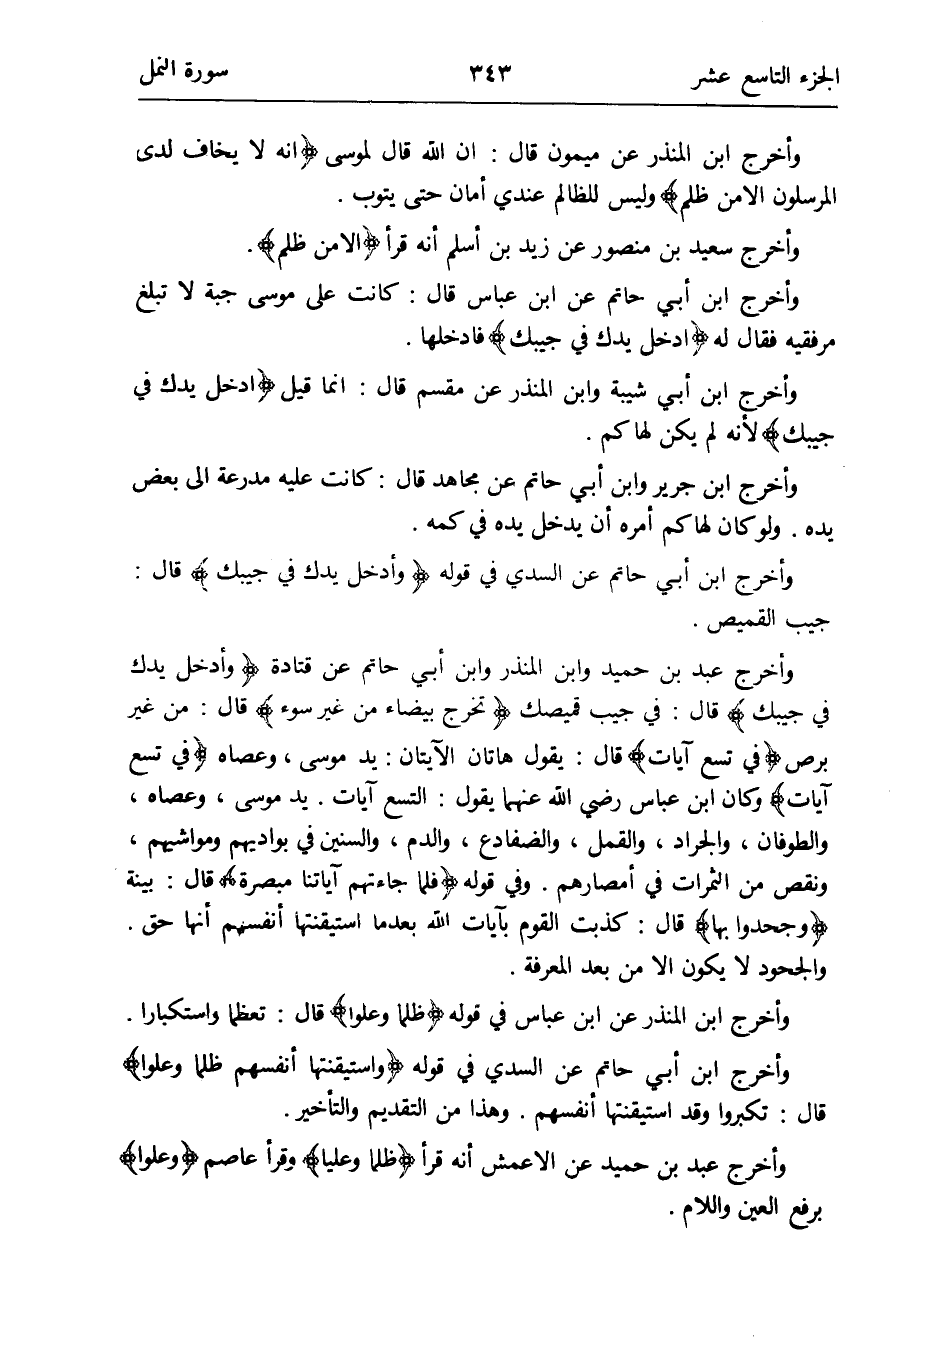 الجزء التاسع عشر ٣٤٣ سورة النمل
وأخرج ابن المنذر عن ميمون قال : ان الله قال لموسى ﴿انه لا يخاف لدى
المرسلون الامن ظلم﴾ وليس للظالم عندي أمان حتى يتوب .
وأخرج سعيد بن منصور عن زيد بن أسلم أنه قرأ ﴿الامن ظلم﴾ .
وأخرج ابن أبي حاتم عن ابن عباس قال : كانت على موسى جبة لا تبلغ
مرفقيه فقال له ﴿ادخل يدك في جيبك﴾ فادخلها .
وأخرج ابن أبي شيبة وابن المنذر عن مقسم قال : انما قيل ﴿ادخل يدك في
جيبك﴾ لأنه لم يكن لها كم .
وأخرج ابن جرير وابن أبي حاتم عن مجاهد قال : كانت عليه مدرعة الى بعض
يده . ولو كان لها كم أمره أن يدخل يده في كمه .
وأخرج ابن أبي حاتم عن السدي في قوله ﴿ وأدخل يدك في جيبك ﴾ قال :
جيب القميص .
وأخرج عبد بن حميد وابن المنذر وابن أبي حاتم عن قتادة ﴿ وأدخل يدك
في جيبك ﴾ قال : في جيب قميصك ﴿ تخرج بيضاء من غير سوء ﴾ قال : من غير
برص ﴿في تسع آيات﴾ قال : يقول هاتان الآيتان : يد موسى ، وعصاه ﴿في تسع
آيات﴾ وكان ابن عباس رضي الله عنهما يقول : التسع آيات . يد موسى ، وعصاه ،
والطوفان ، والجراد ، والقمل ، والضفادع ، والدم ، والسنين في بواديهم ومواشيهم ،
ونقص من الثمرات في أمصارهم . وفي قوله ﴿فلما جاءتهم آياتنا مبصرة﴾ قال : بينة
﴿وجحدوا بها﴾ قال : كذبت القوم بآيات الله بعدما استيقنتها أنفسهم أنها حق .
والجحود لا يكون الا من بعد المعرفة .
وأخرج ابن المنذر عن ابن عباس في قوله ﴿ظلما وعلوا﴾ قال : تعظما واستكبارا .
وأخرج ابن أبي حاتم عن السدي في قوله ﴿واستيقنتها أنفسهم ظلما وعلوا﴾
قال : تكبروا وقد استيقنتها أنفسهم . وهذا من التقديم والتأخير .
وأخرج عبد بن حميد عن الاعمش أنه قرأ ﴿ظلما وعليا﴾ وقرأ عاصم ﴿وعلوا﴾
برفع العين واللام .